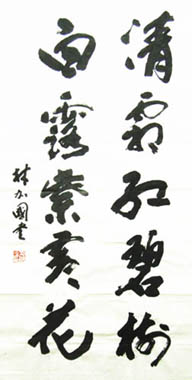 清霜红碧樹
白露紫黄花
林加國书